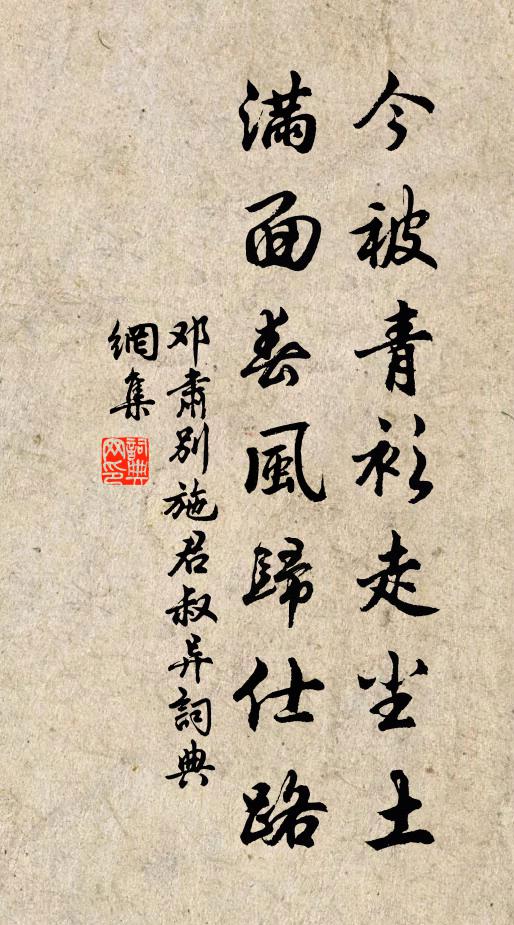 今被青衫走尘土
满面春風歸仕路
邓肃别施君叔异詞典
網集
詞典网印